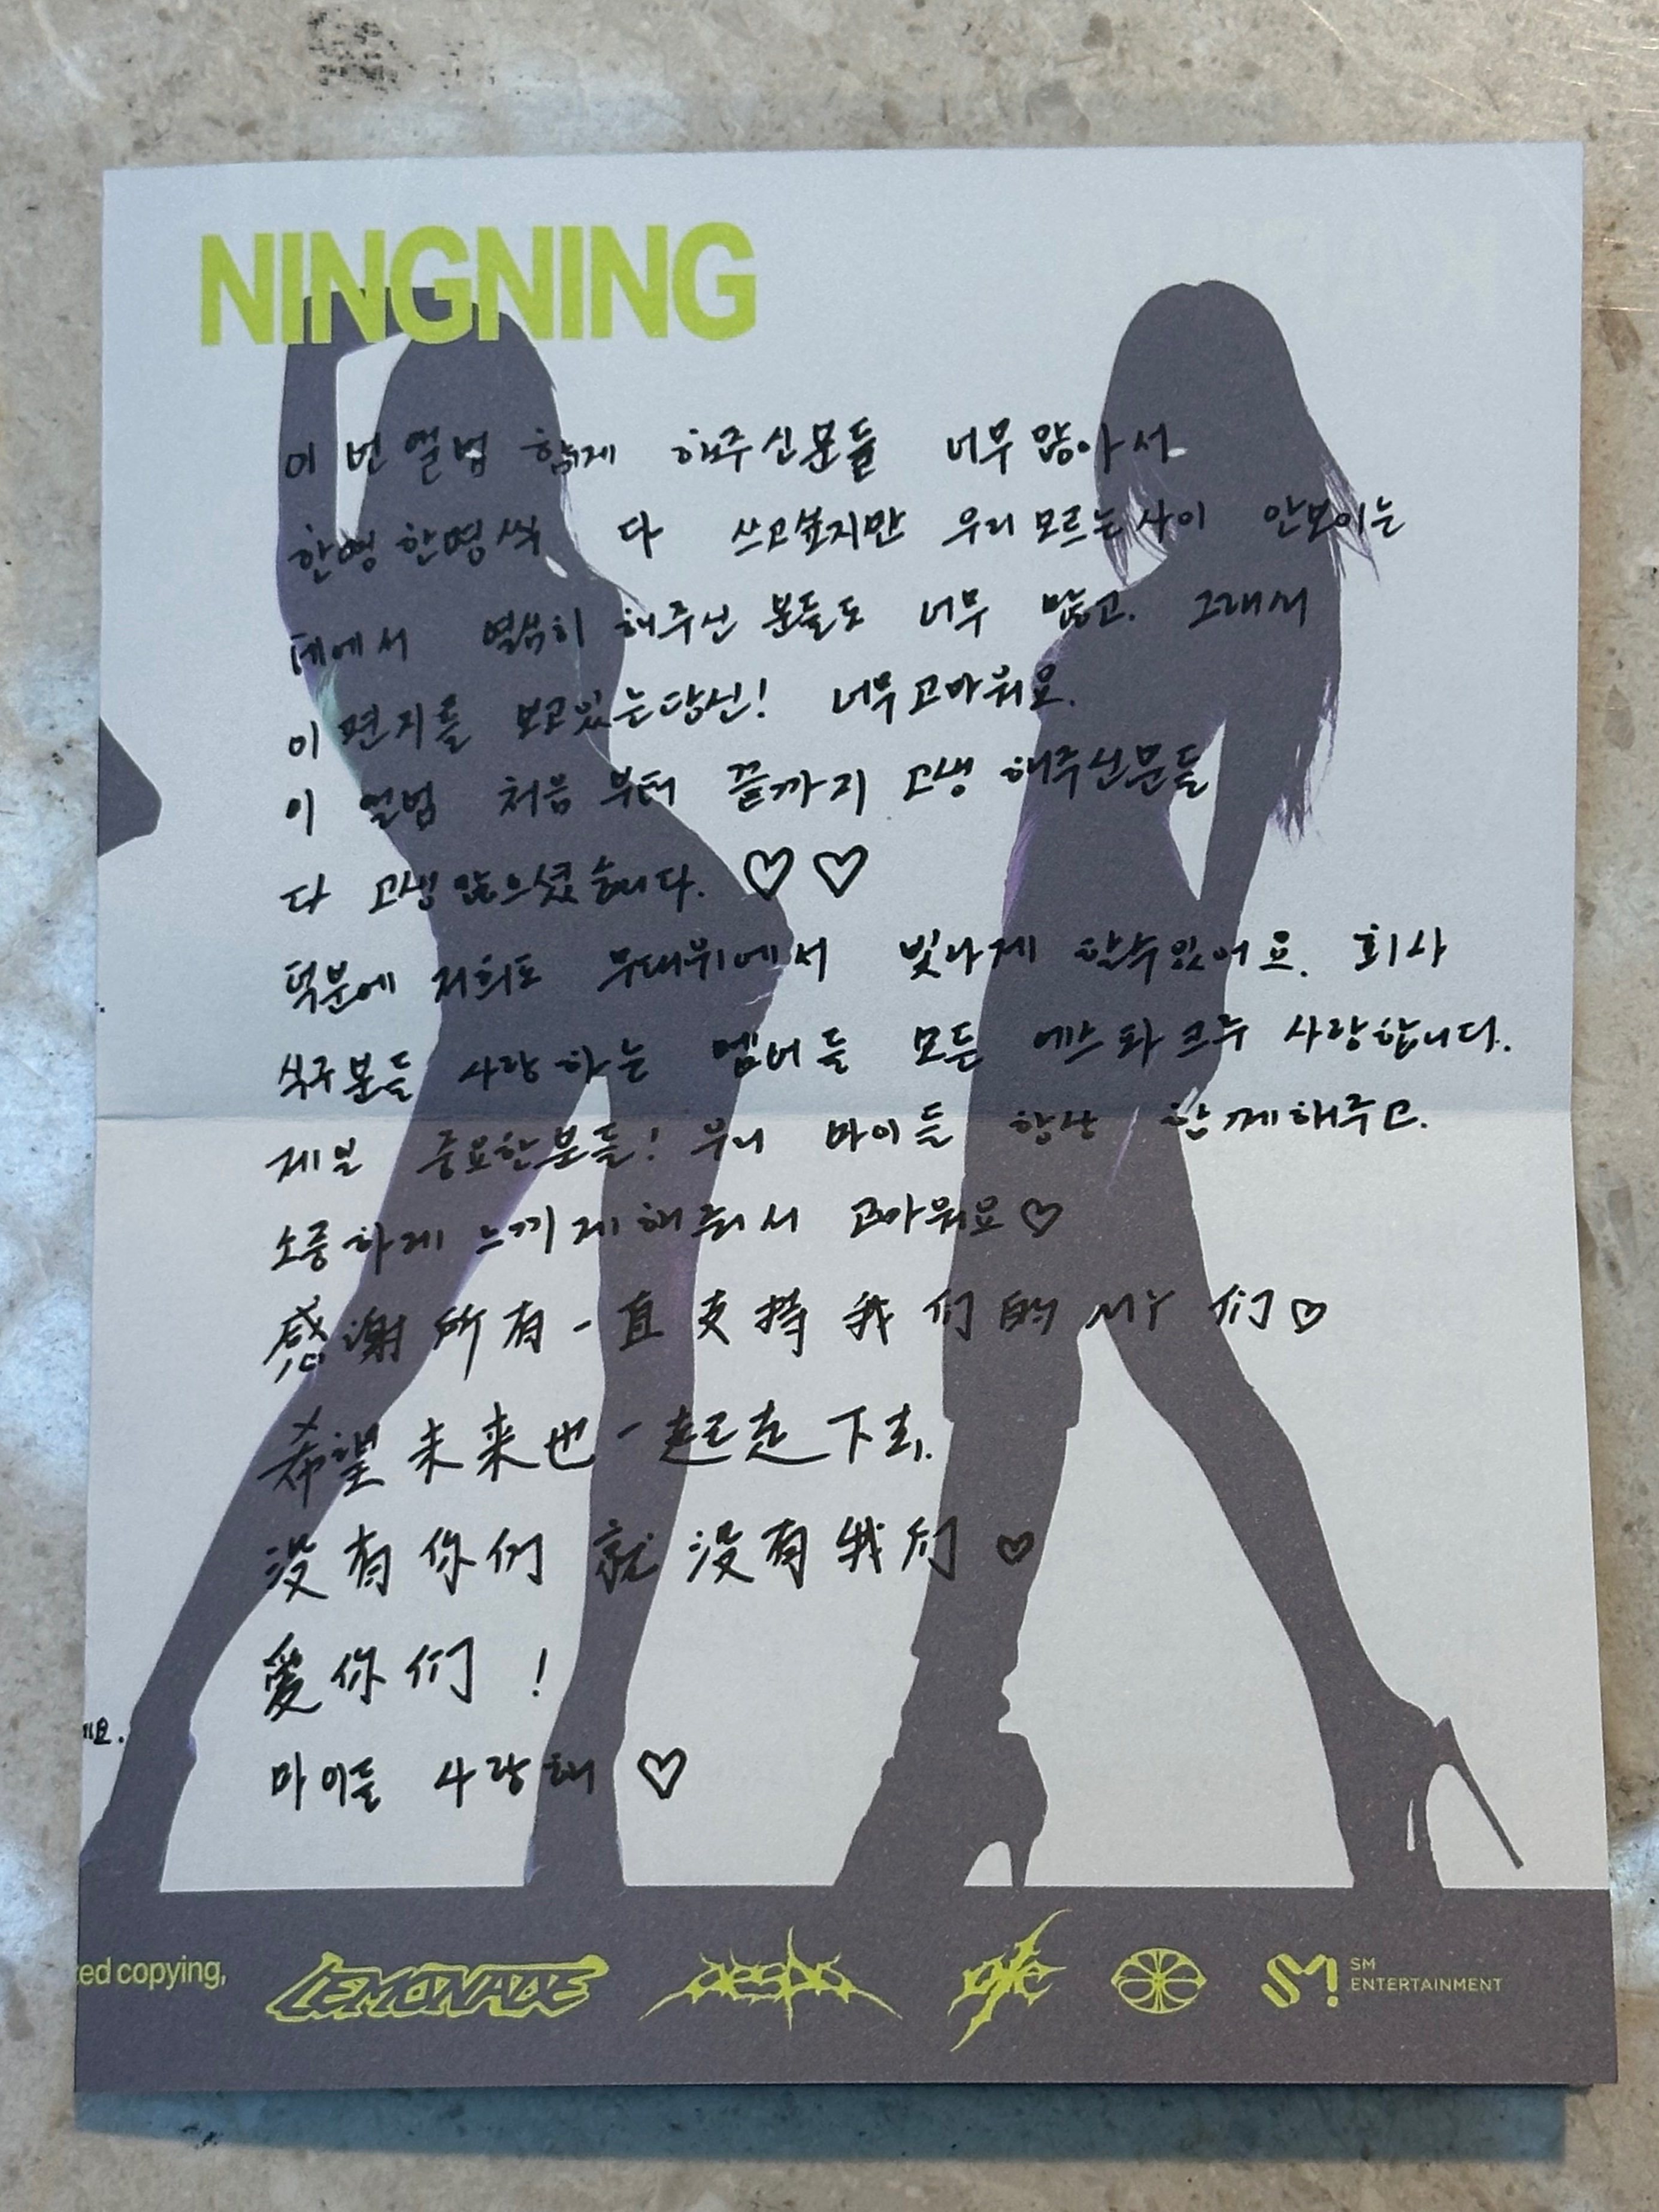 NINGNING
이번 앨범 함께 해주신분들 너무많아서
한명한명씩 다 쓰고싶지만 우리모르는사이 안보이는
데에서 열심히 해주신 분들도 너무 많고. 그래서
이 편지를 보고있는당신! 너무고마워요.
이 앨범 처음부터 끝까지 고생 해주신분들
다 고생많으셨습니다. ♡♡
덕분에 저희도 무대위에서 빛나게 할수있어요. 회사
식구분들 사랑하는 멤버들 모든 에스파크루 사랑합니다.
제일 중요한분들! 우리 마이들 항상 함께해주고.
소중하게 느끼게해줘서 고마워요♡
感谢所有一直支持我们的MY们♡
希望未来也一起走下去.
没有你们就没有我们♡
愛你们!
마이들 사랑해 ♡
ed copying,
LEMONADE
aespa
SM
ENTERTAINMENT